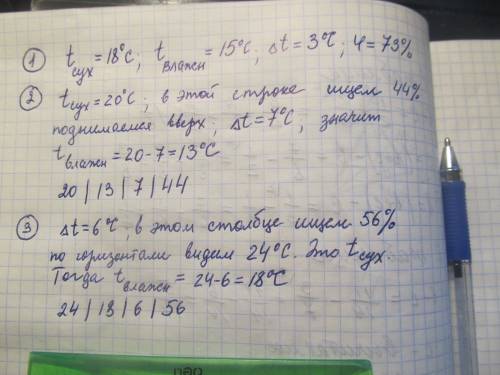 ① tсух = 18°C; tвлажн = 15°C; Δt = 3°C; φ = 73%
② tсух = 20°C; в этой строке ищем 44%
поднимаемся вверх; Δt = 7°C, значит
tвлажн = 20 - 7 = 13°C
20 | 13 | 7 | 44
③ Δt = 6°C, в этом столбце ищем 56%
по горизонтали видем 24°C. Это tсух.
Тогда tвлажн = 24 - 6 = 18°C
24 | 18 | 6 | 56